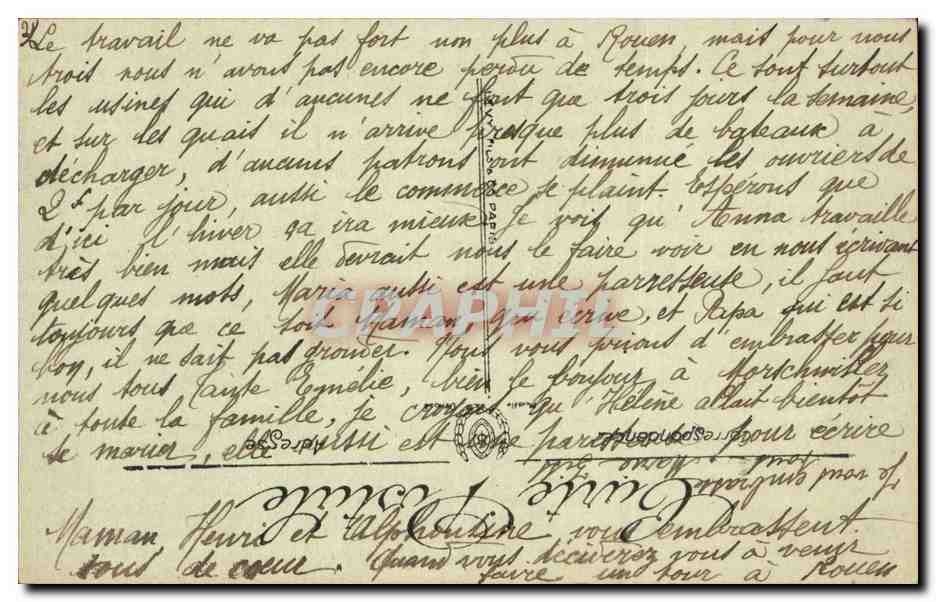 2) Le travail ne va pas fort non plus à Rouen, mais pour nous
trois nous n'avons pas encore perdu de temps. Ce sont surtout
les usines qui d'aucunes ne font que trois jours la semaine,
et sur les quais il n'arrive presque plus de bateaux à
décharger, d'aucuns patrons ont diminué les ouvriers de
2f par jour, aussi le commerce se plaint. Espérons que
d'ici l'hiver ça ira mieux. Je vois qu'Anna travaille
très bien mais elle devrait nous le faire voir en nous écrivant
quelques mots, Maria aussi est une parresseuse, il faut
toujours que ce soit Maman, qui écrive, et Papa qui est si
bon, il ne sait pas gronder. Nous vous prions d'embrasser pour
nous tous Tante Emélie, bien le bonjour à Morschwiller
à toute la famille, je croyais qu'Hélène allait bientôt
se marier, elle aussi est une paresseuse pour écrire
Je vous embrasse
tous
Maman, Henri et Alphonsine vous embrassent
tous de coeur. Quand vous déciderez vous à venir
faire un tour à Rouen
Carte Postale
Correspondance
Adresse
PARIS
CPAPHIL